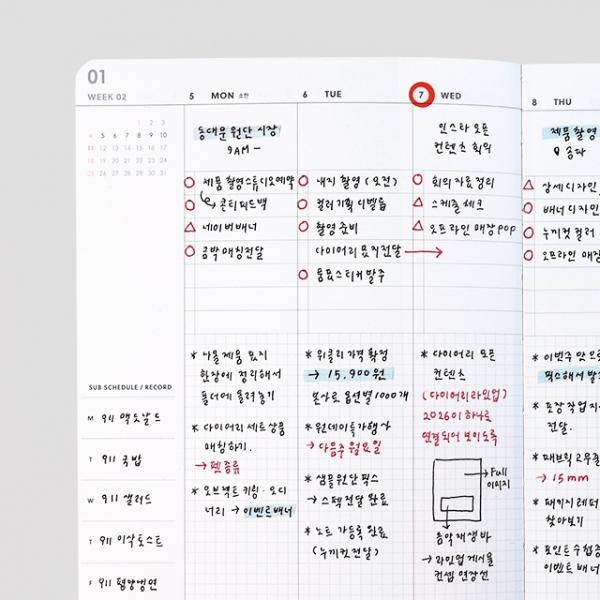 01
WEEK 02
1 2 3
4 5 6 7 8 9 10
11 12 13 14 15 16 17
18 19 20 21 22 23 24
25 26 27 28 29 30 31
5 MON 소한
동대문 원단 시장
9AM -
○ 제품 촬영 스튜디오 예약
○ 콘티 피드백
△ 네이버 배너
○ 금박 매칭 전달
* 나올 제품 표지
한장에 정리해서
폴더에 올려놓기
* 다이어리 세트상품
매칭하기.
→ 펜 종류
* 오브젝트 키링·오디
너리 → 이벤트 배너
6 TUE
○ 내지 촬영 (오전)
○ 컬러 기획 디벨롭
○ 촬영 준비
다이어리 묶지 전달 →
○ 용품 스티커 발주
* 위클리 가격 확정
→ 15,900원
본사로 옵션별 1000개
* 원데이특가 행사
→ 다음주 월요일
* 샘플 원단 픽스
→ 스펙 전달 완료
* 노트 가등록 완료
(누끼컷 전달)
7 WED
인스타 오픈
컨텐츠 회의
○ 회의 자료 정리
△ 스케줄 체크
△ 오프라인 매장 POP
* 다이어리 오픈
컨텐츠
(다이어리 라인업)
2026이 하나로
연결되어 보이도록
→ Full
이미지
음악 재생 바
→ 라인업 게시물
컨셉 연장선
8 THU
제품 촬영
송파
△ 상세 디자인
○ 배너 디자인
○ 누끼컷 컬러
○ 오프라인 매장
* 이번주 안으로
픽스해서 발
* 포장 작업 지
전달.
* 패브릭 고무줄
→ 15mm
* 패키지 레퍼
찾아보기
* 포인트 수첩
이벤트 배너
SUB SCHEDULE / RECORD
M 911 맥도날드
T 911 국밥
W 911 샐러드
T 911 이삭토스트
F 911 평양냉면